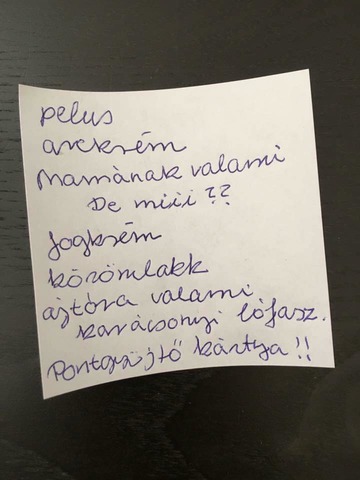 pelus
arckrém
Mamának valami
De miii ??
fogkrém
körömlakk
ajtóra valami
karácsonyi lófasz.
Pontgyűjtő kártya !!